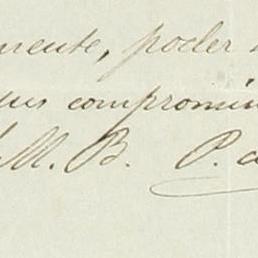 mente, poder
sus compromi
M. B. P. d